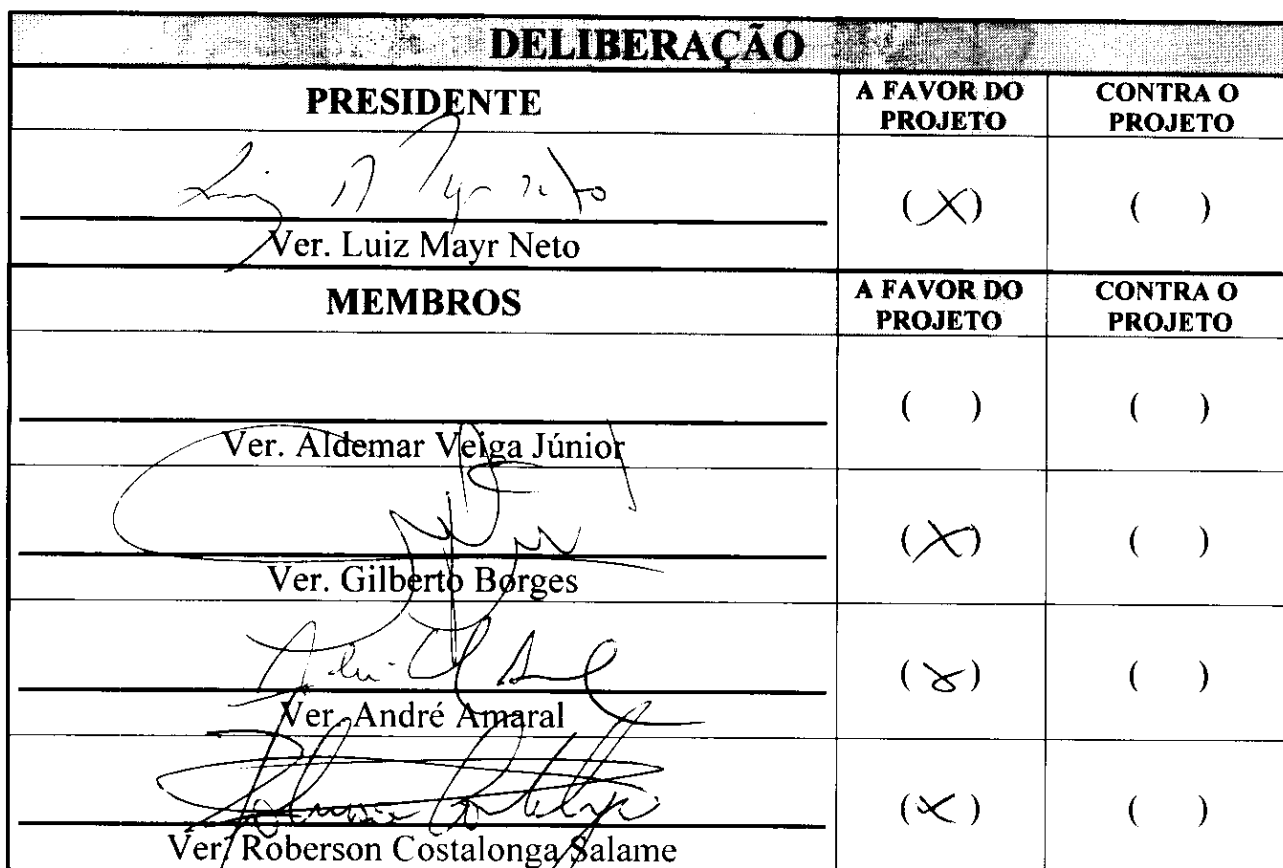 DELIBERAÇÃO
PRESIDENTE
A FAVOR DO PROJETO
CONTRA O PROJETO
Luiz Mayr Neto
(X)
( )
Ver. Luiz Mayr Neto
MEMBROS
A FAVOR DO PROJETO
CONTRA O PROJETO
( )
( )
Ver. Aldemar Veiga Júnior
(X)
( )
Ver. Gilberto Borges
(X)
( )
Ver. André Amaral
(X)
( )
Ver. Roberson Costalonga Salame